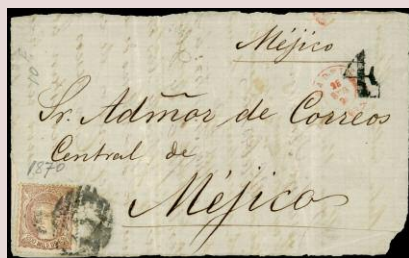 Méjico
4
Sr. Admor de Correos
Central de
1870
Méjico